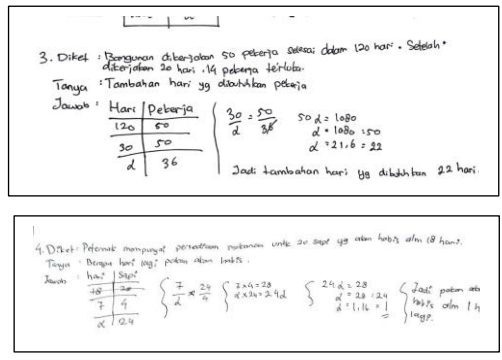 3. Diket : Bangunan dikerjakan 50 pekerja selesai dalam 120 hari. Setelah
dikerjakan 20 hari, 14 pekerja terluka.
Tanya : Tambahan hari yg dibutuhkan pekerja
Jawab : Hari | Pekerja
120 | 50
30 | 50
d | 36
30/d = 50/36
50 d = 1080
d = 1080 : 50
d = 21,6 = 22
Jadi tambahan hari yg dibutuhkan 22 hari.
4. Diket : Peternak mempunyai persediaan makanan untk 20 sapi yg akan habis dlm 18 hari.
Tanya : Berapa hari lagi pakan akan habis.
Jawab : hari | sapi
18 | 20
7 | 4
d | 24
7/d = 24/4
7 x 4 = 28
d x 24 = 24d
24 d = 28
d = 28 : 24
d = 1,16 = 1
Jadi pakan
habis dlm 1 h
lagi.